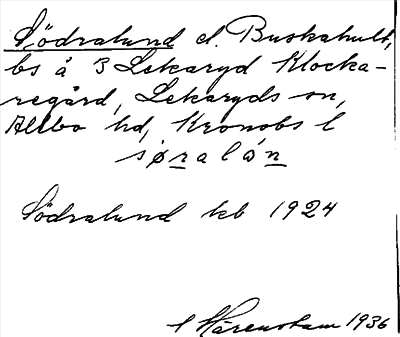 Södralund el. Buskahult,
bs å 3 Lekaryd Klocka-
regård, Lekaryds sn,
Allbo hd, Kronobs l
sø̱ṟalø̀ṉ
Södralund kb 1924
Härenstam 1936